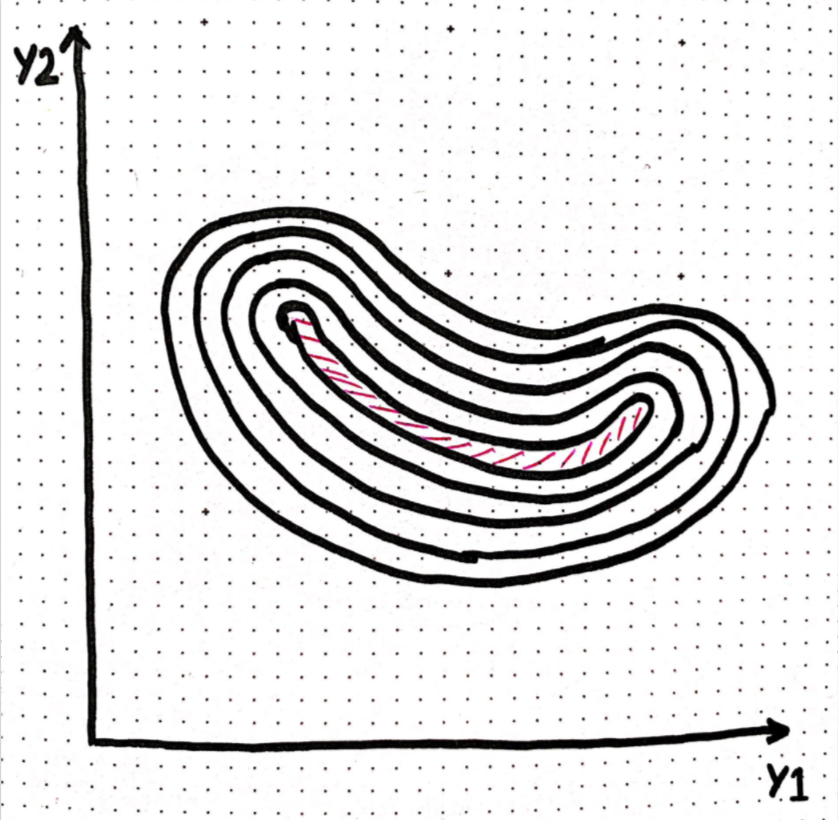 Y2
Y1